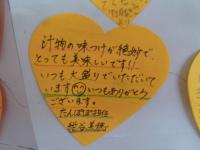 汁物の味つけが絶妙で、
とっても美味しいです!!
いつも大盛りでいただいて
います いつもありがとう
ございます。
たんぽぽ担任